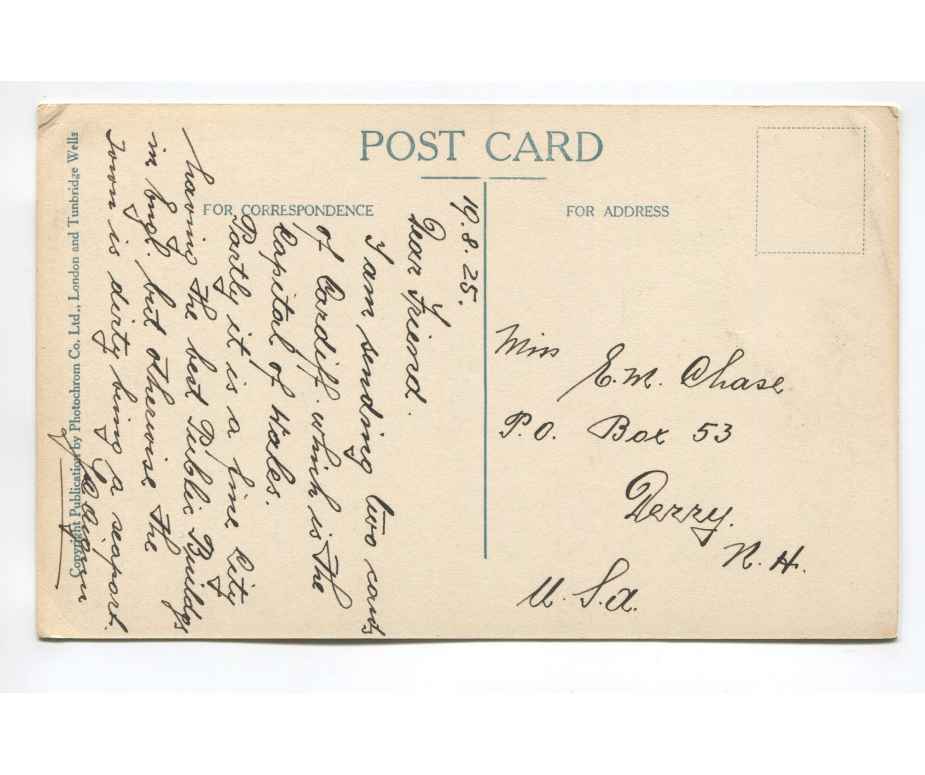 POST CARD
FOR CORRESPONDENCE
FOR ADDRESS
19.8.25.
Dear Friend.
I am sending two cards
of Cardiff. which is the
Capital of Wales.
Partly it is a fine City
having the best Public Buildgs
in Engl. but otherwise the
Town is dirty being a seaport.
Miss
E. M. Chase
P.O. Box 53
Derry.
N. H.
U. S. a.
Copyright Publication by Photochrom Co. Ltd., London and Tunbridge Wells